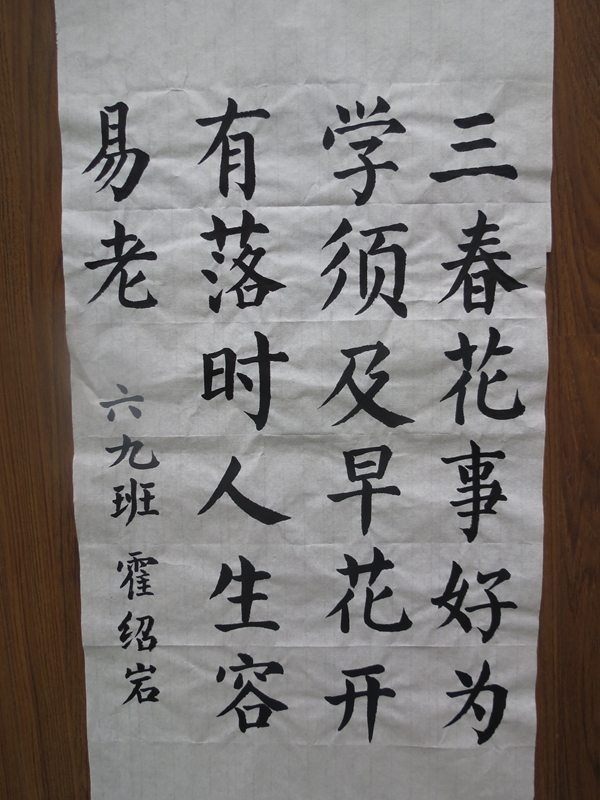 三春花事好为
学须及早花开
有落时人生容
易老
六九班 霍绍岩